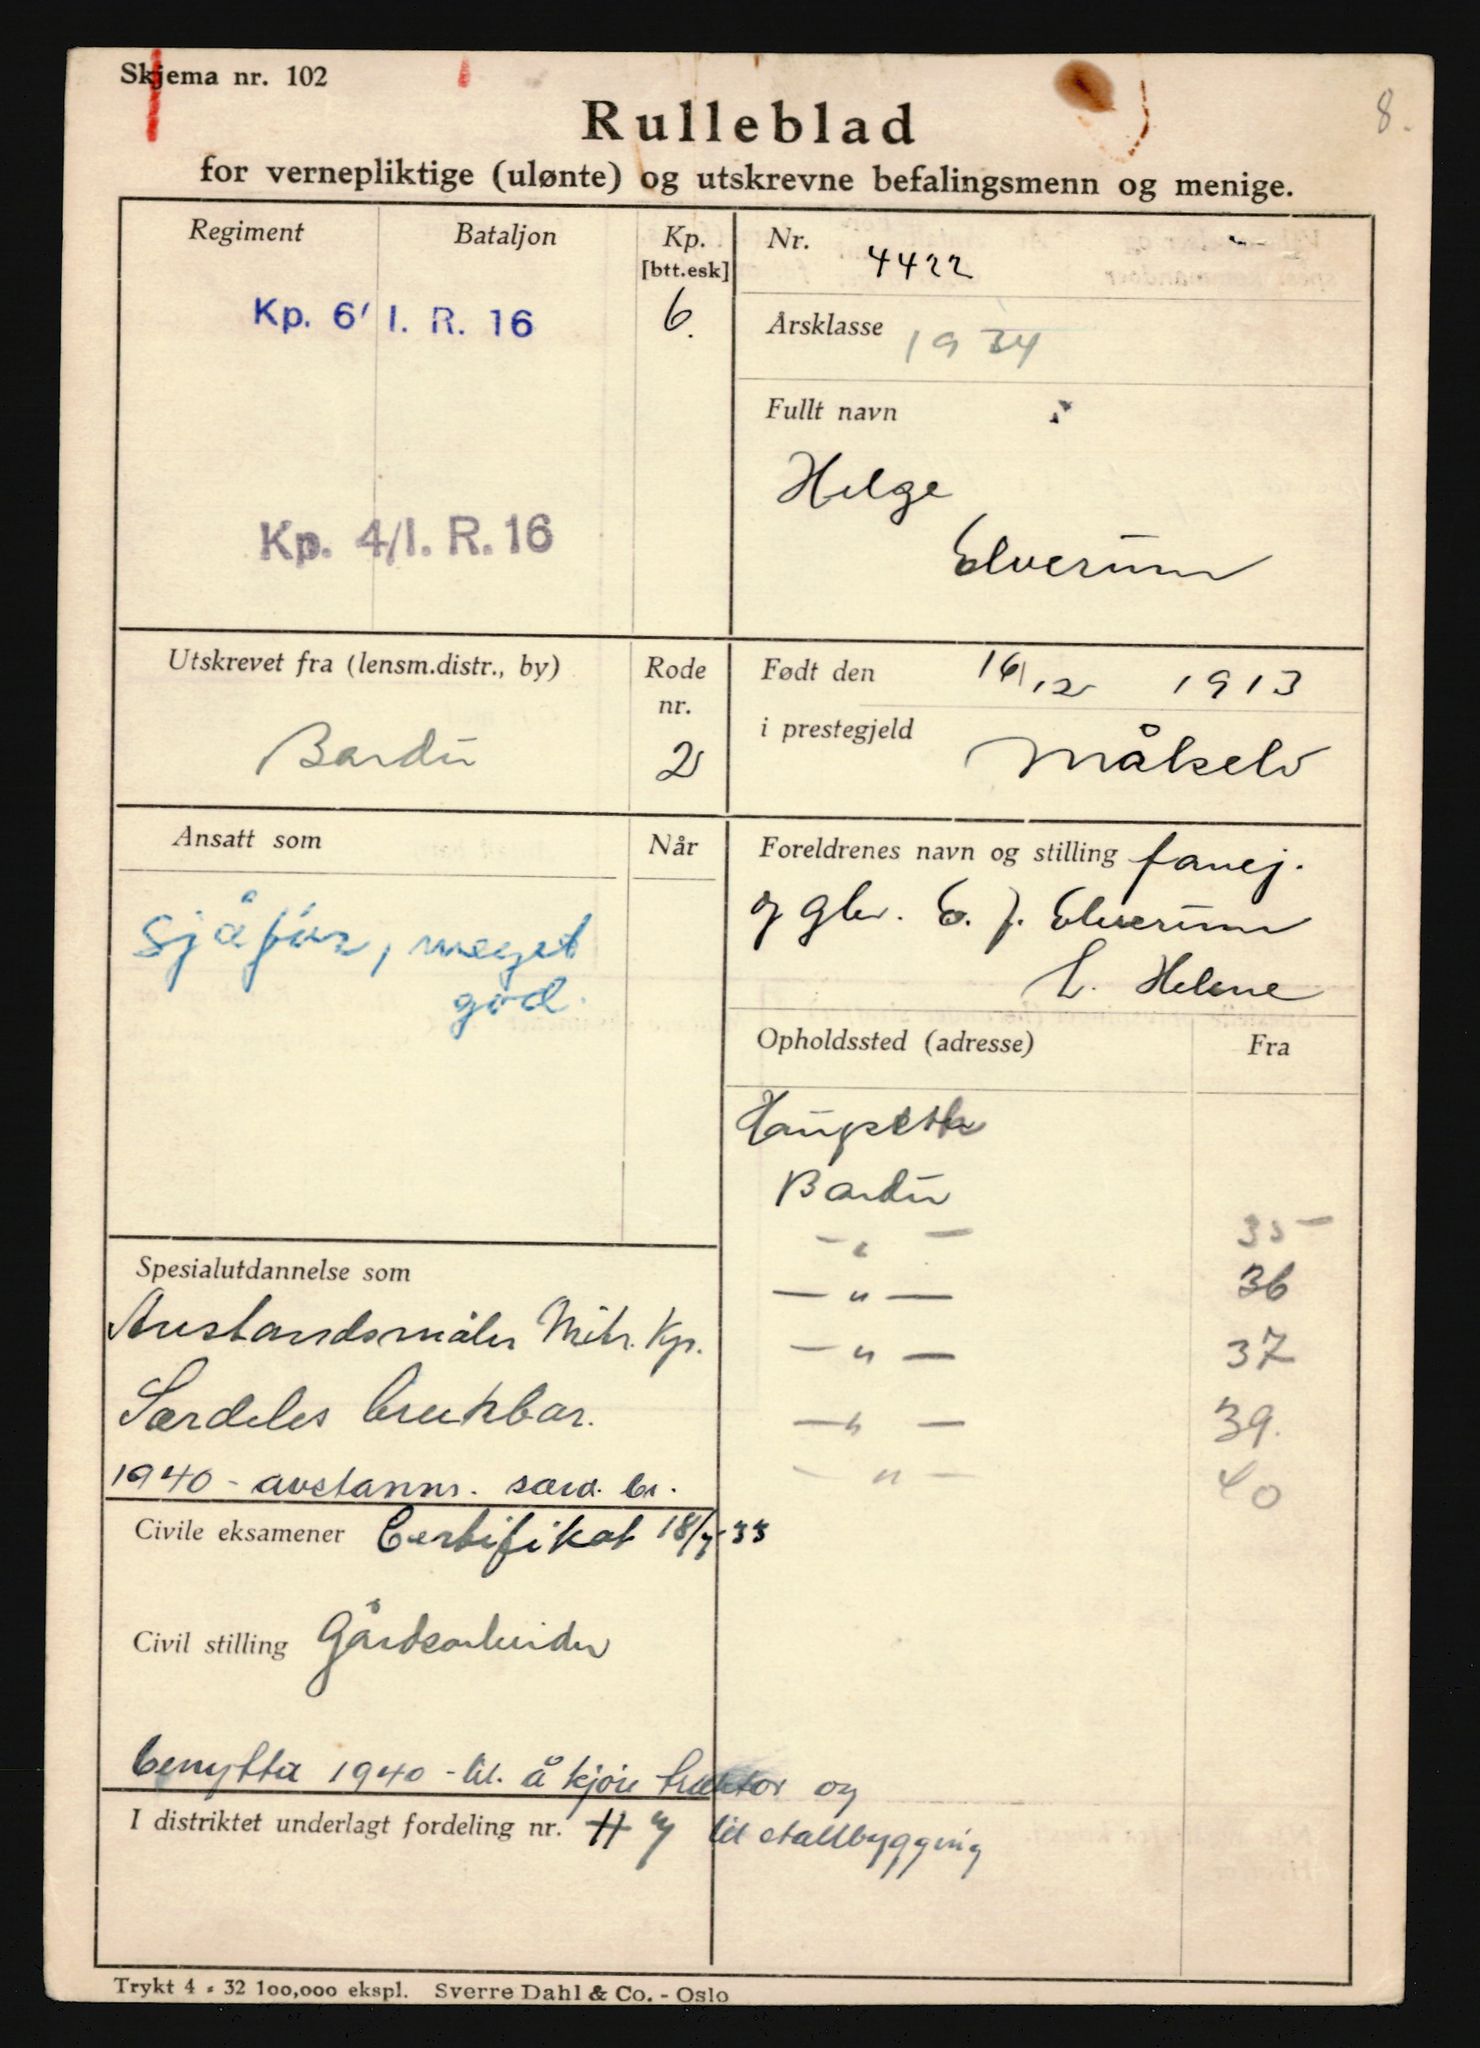 8.
Skjema nr. 102
Rulleblad
for vernepliktige (ulønte) og utskrevne befalingsmenn og menige.
Regiment Bataljon Kp. [btt.esk]
Kp. 6/ I. R. 16 6.
Kp. 4/I. R. 16
Nr. 4422
Årsklasse 1934
Fullt navn
Helge
Elverum
Utskrevet fra (lensm.distr., by) Rode nr.
Bardu 2
Født den 16/12 1913
i prestegjeld Målselv
Ansatt som Når
sjåfør, meget
god.
Foreldrenes navn og stilling
og gbr. E. J. Elverum
Helene
Opholdssted (adresse) Fra
Bardu
— " — 35
— " — 36
— " — 37
— " — 39.
— " — 40
Spesialutdannelse som
Avstandsmåler Mitr. Kp.
Særdeles brukbar.
1940 - avstanm. særd. br.
Civile eksamener Certifikat 18/7-33
Civil stilling Gårdsarbeider
benytta 1940 - til å kjøre traktor og
til stallbygging
I distriktet underlagt fordeling nr.
Trykt 4 - 32 100,000 ekspl. Sverre Dahl & Co. - Oslo